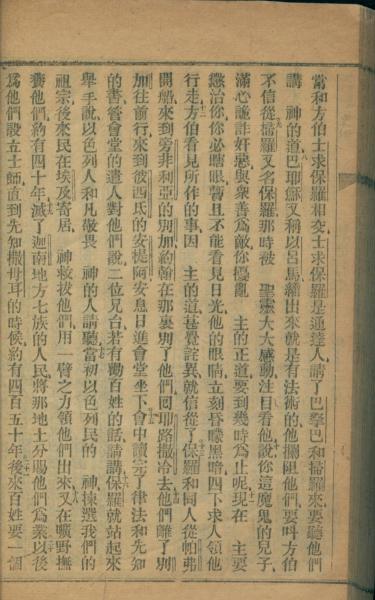 常和方伯士求保羅相交士求保羅是通達人請了巴拏巴和掃羅來要聽他們
講 神的道巴耶穌又稱以呂馬繙出來就是有法術的他攔阻他們要呌方伯
不信從掃羅又名保羅那時被 聖靈大大感動注目看他說你這魔鬼的兒子
滿心詭詐奸惡與衆善爲敵你擾亂 主的正道要到幾時爲止呢現在 主要
懲治你你必瞎眼暫且不能看見日光他的眼睛立刻昏矇黑暗四下求人領他
行走方伯看見所作的事因 主的道甚覺詫異就信從了保羅和同人從帕弗
開船來到旁非利亞的別加約翰在那裏別了他們囘耶路撒冷去他們離了別
加往前行來到彼西氐的安提阿安息日進會堂坐下會中讀完了律法和先知
的書管會堂的遣人對他們說二位兄台若有勸百姓的話請講保羅就站起來
舉手說以色列人和凡敬畏 神的人請聽當初以色列民的 神揀選我們的
祖宗後來民在埃及寄居 神救拔他們用一臂之力領他們出來又在曠野撫
養他們約有四十年滅了迦南地方七族的人民將那地土分賜他們爲業以後
爲他們設立士師直到先知撒母耳的時候約有四百五十年後來百姓要一個